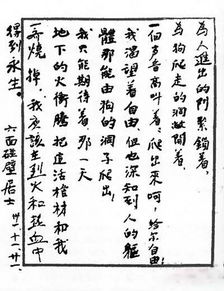 為人進出的門緊鎖着，
為狗爬走的洞敞開着，
一個声音高叫着：爬出来呵，给尔自由！
我渴望着自由，但也深知到人的軀
體那能由狗的洞子爬出！
我只能期待着，那一天
地下的火衝騰，把這活棺材和我
一齊燒掉，我應該在烈火和热血中
得到永生。
六面碰壁居士 卅一．十一．廿一．